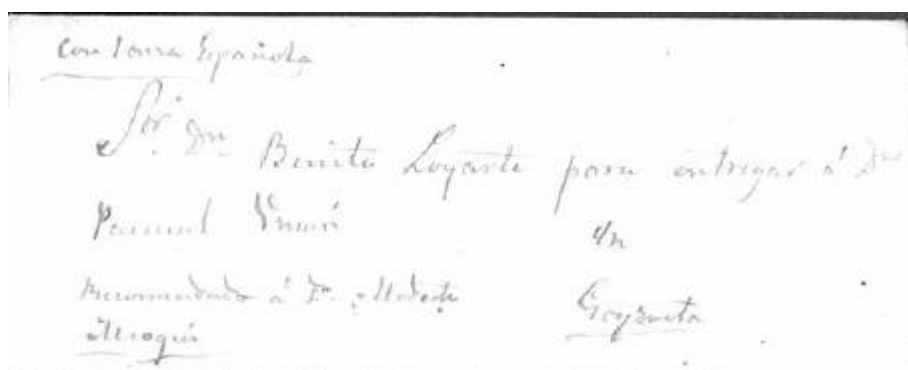 Con Lanza Española
Sor. Dn. Benito Loyarte para entregar á Dn
Pascual
Recomendado á Dn. Modesto en
Goyzueta